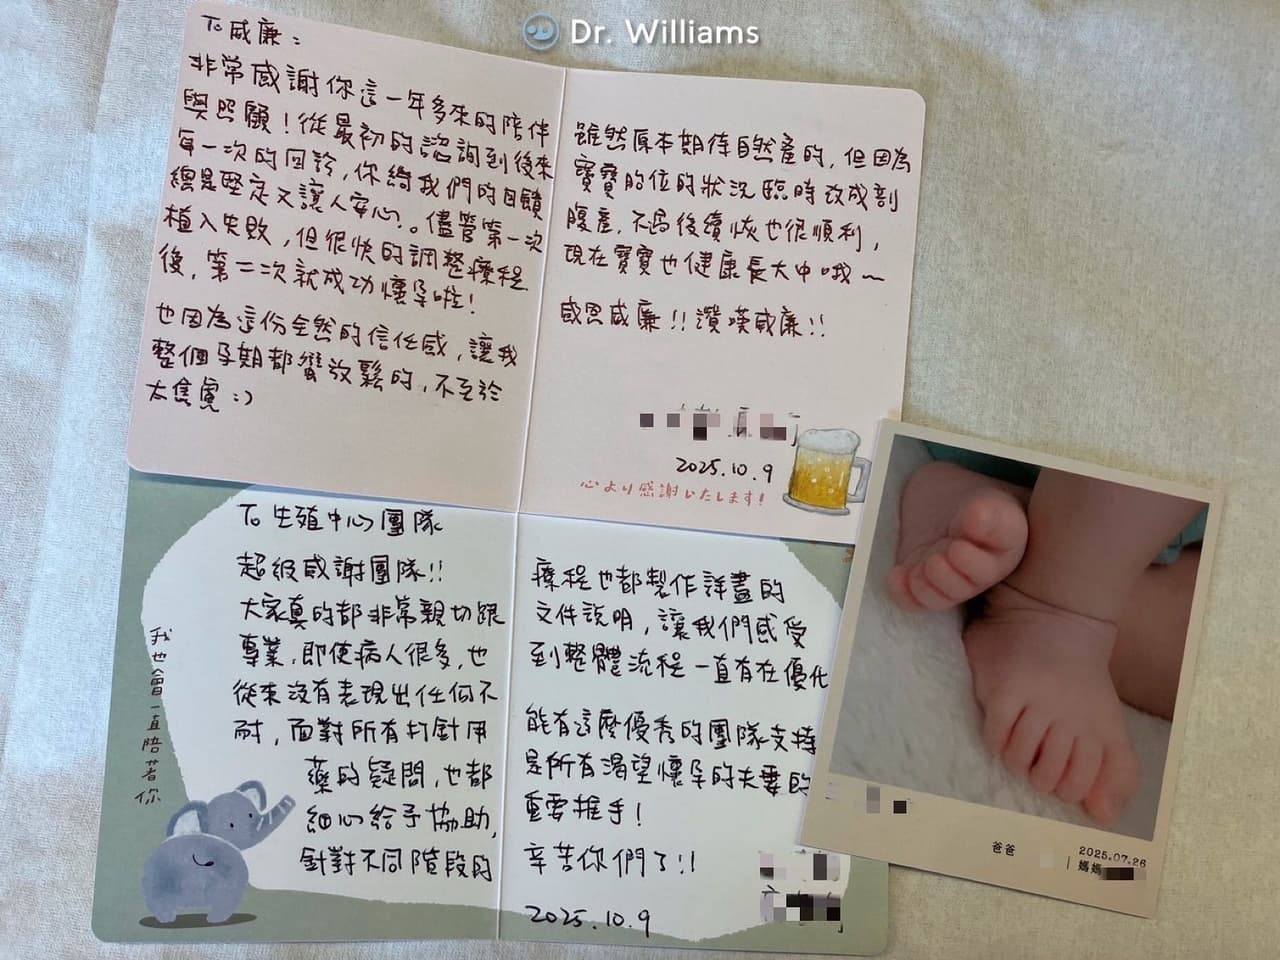 Dr. Williams
To 威廉：
非常感謝你這一年多來的陪伴
與照顧！從最初的諮詢到後來
每一次的回診，你給我們的回饋
總是堅定又讓人安心。儘管第一次
植入失敗，但很快的調整療程
後，第二次就成功懷孕啦！
也因為這份全然的信任感，讓我
整個孕期都蠻放鬆的，不至於
太焦慮：)
雖然原本期待自然產的，但因為
寶寶胎位的狀況臨時改成剖
腹產，不過後續恢也很順利，
現在寶寶也健康長大中哦～
感恩威廉！！讚嘆威廉！！
2025.10.9
心より感謝いたします！
To 生殖中心團隊
超級感謝團隊！！
大家真的都非常親切跟
專業，即使病人很多，也
從來沒有表現出任何不
耐，面對所有打針用
藥的疑問，也都
細心給予協助，
針對不同階段的
我也會一直陪著你
療程也都製作詳盡的
文件說明，讓我們感受
到整體流程一直有在優化
能有這麼優秀的團隊支持
是所有渴望懷孕的夫妻的
重要推手！
辛苦你們了！！
2025.10.9
2025.07.26
爸爸 | 媽媽